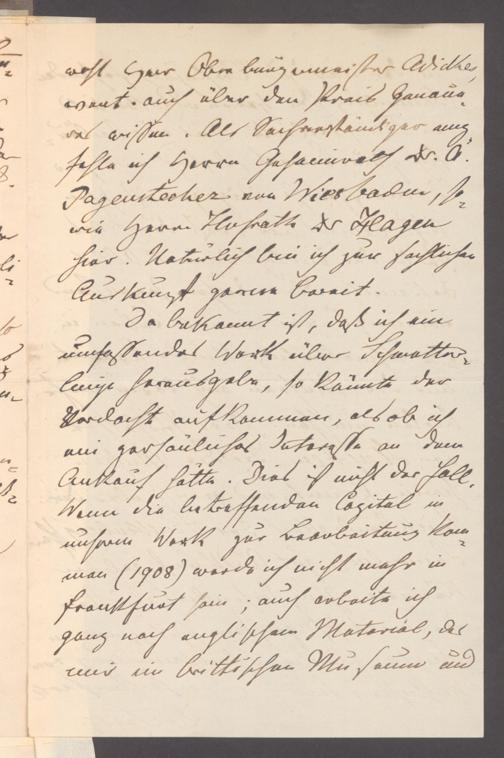 wohl Herr Oberbürgermeister Adickes
event. auch über den Preis Genaue-
res wissen. Als Sachverständiger emp-
fehle ich Herrn Geheimrath Dr.
Pagenstecher von Wiesbaden, so-
wie Herrn Hofrath Dr Hagen
hier. Natürlich bin ich zur sachlichen
Auskunft gerne bereit.
Da bekannt ist, daß ich ein
umfassendes Werk über Schmetter-
linge herausgebe, so könnte der
Verdacht aufkommen, als ob ich
ein persönliches Interesse an dem
Ankauf hätte. Dies ist nicht der Fall.
Wenn die betreffenden Capitel in
unsrem Werk zur Bearbeitung kom-
men (1908) werde ich nicht mehr in
Frankfurt sein; auch arbeite ich
ganz nach englischem Material, das
mir im brittischen Museum und